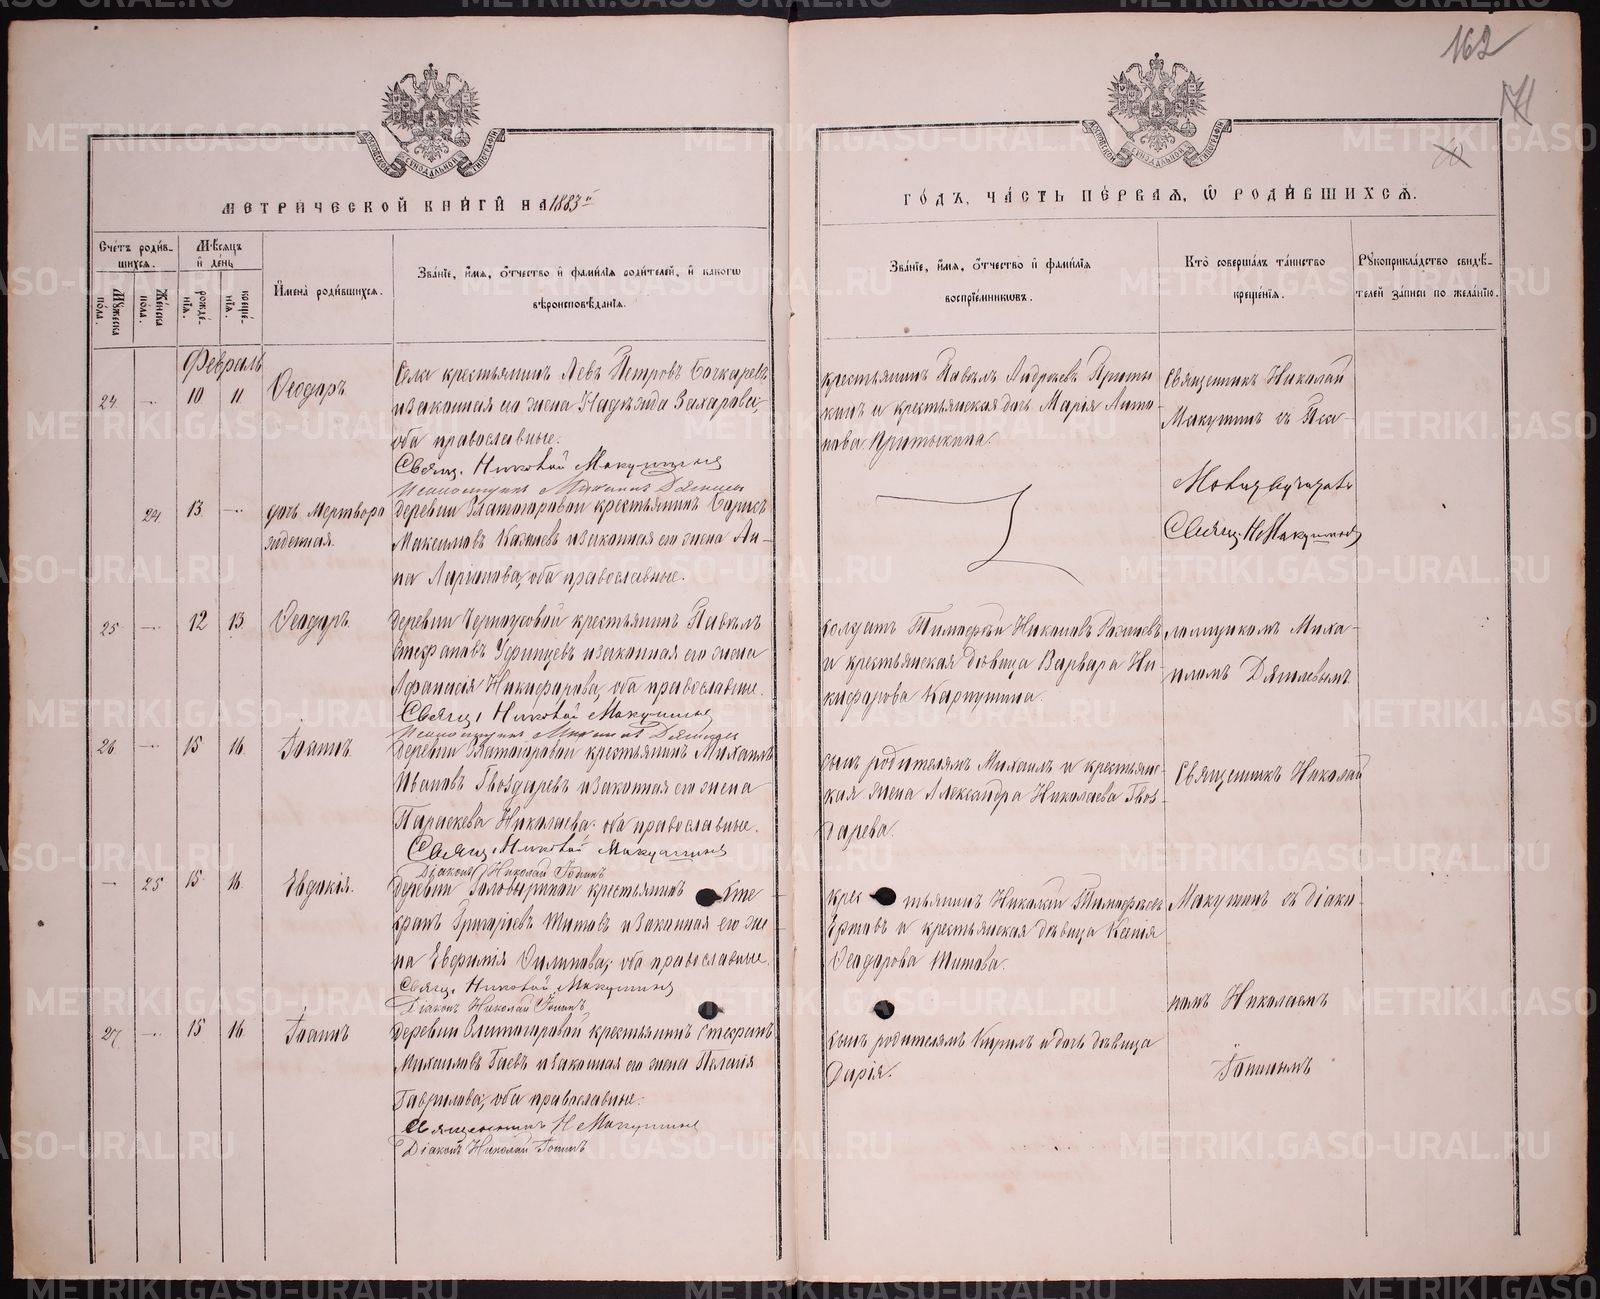 162
МЕТРИЧЕСКОЙ КНИГИ НА 1883й
ГОДЪ, ЧАСТЬ ПЕРВАЯ, Ѿ РОДИВШИХСЯ.
Счетъ родившихся.
Мужеска пола.
Женска пола.
Мѣсяцъ и день
рожденія.
крещенія.
Имена родившихся.
Званіе, имя, отчество и фамилія родителей, и какогѡ вѣроисповѣданія.
Званіе, имя, отчество и фамилія воспріемникѡвъ.
Кто совершалъ таинство крещенія.
Рукоприкладство свидѣтелей записи по желанію.
Февраль
24. — 10 11 Ѳеодоръ
Села крестьянинъ Левъ Петровъ Бочкаревъ
и законная его жена Надежда Захарова,
оба православные.
Свящ. Николай Макушинъ
Псаломщикъ Михаилъ
крестьянинъ Павелъ Андреевъ Приты
кинъ и крестьянская дочь Марія Анто-
нова Притыкина.
Священникъ Николай
Макушинъ съ Пса-
24. 13. — дочь Мертворо
жденная.
деревни Златогоровой крестьянинъ Борисъ
Максимовъ и законная его жена Ан-
на Ларіонова, оба православные.
Свящ. Н Макушинъ
25 — 12 13. Ѳеодоръ
деревни крестьянинъ Павелъ
Стефановъ Уфинцевъ и законная его жена
Афанасія Никифорова, оба православные.
Свящ. Николай Макушинъ
Псаломщикъ Михаилъ
солдатъ Тимофей
и крестьянская дѣвица Варвара Ни-
кифорова Карпушина.
ломщикомъ Миха-
иломъ
26 — 15 16. Іоаннъ
деревни Златогоровой крестьянинъ Михаилъ
Ивановъ Гвоздаревъ и законная его жена
Параскева Николаева. оба православные.
Свящ. Николай Макушинъ
Діаконъ Николай Іонинъ
сынъ родителямъ Михаилъ и крестьянс-
кая жена Александра Николаева Гвоз-
дарева.
Священникъ Николай
— 25 15 16. Евдокія.
деревни крестьянинъ Сте
фанъ Григорьевъ Титовъ и законная его же
на Евфимія Филипова, оба православные.
Свящ. Николай Макушинъ
Діаконъ Николай Іонинъ
крестьянинъ Николай Тимофеевъ
и крестьянская дѣвица Ксенія
Ѳеодорова Титова.
Макушинъ съ діако-
27 — 15 16 Іоаннъ
деревни Златогоровой крестьянинъ Стефанъ
Михаиловъ и законная его жена Пелагія
Гаврилова, оба православные.
Священникъ Н Макушинъ
Діаконъ Николай Іонинъ
сынъ родителямъ Кирилъ и дочь дѣвица
Дарія.
номъ Николаемъ
Іонинымъ